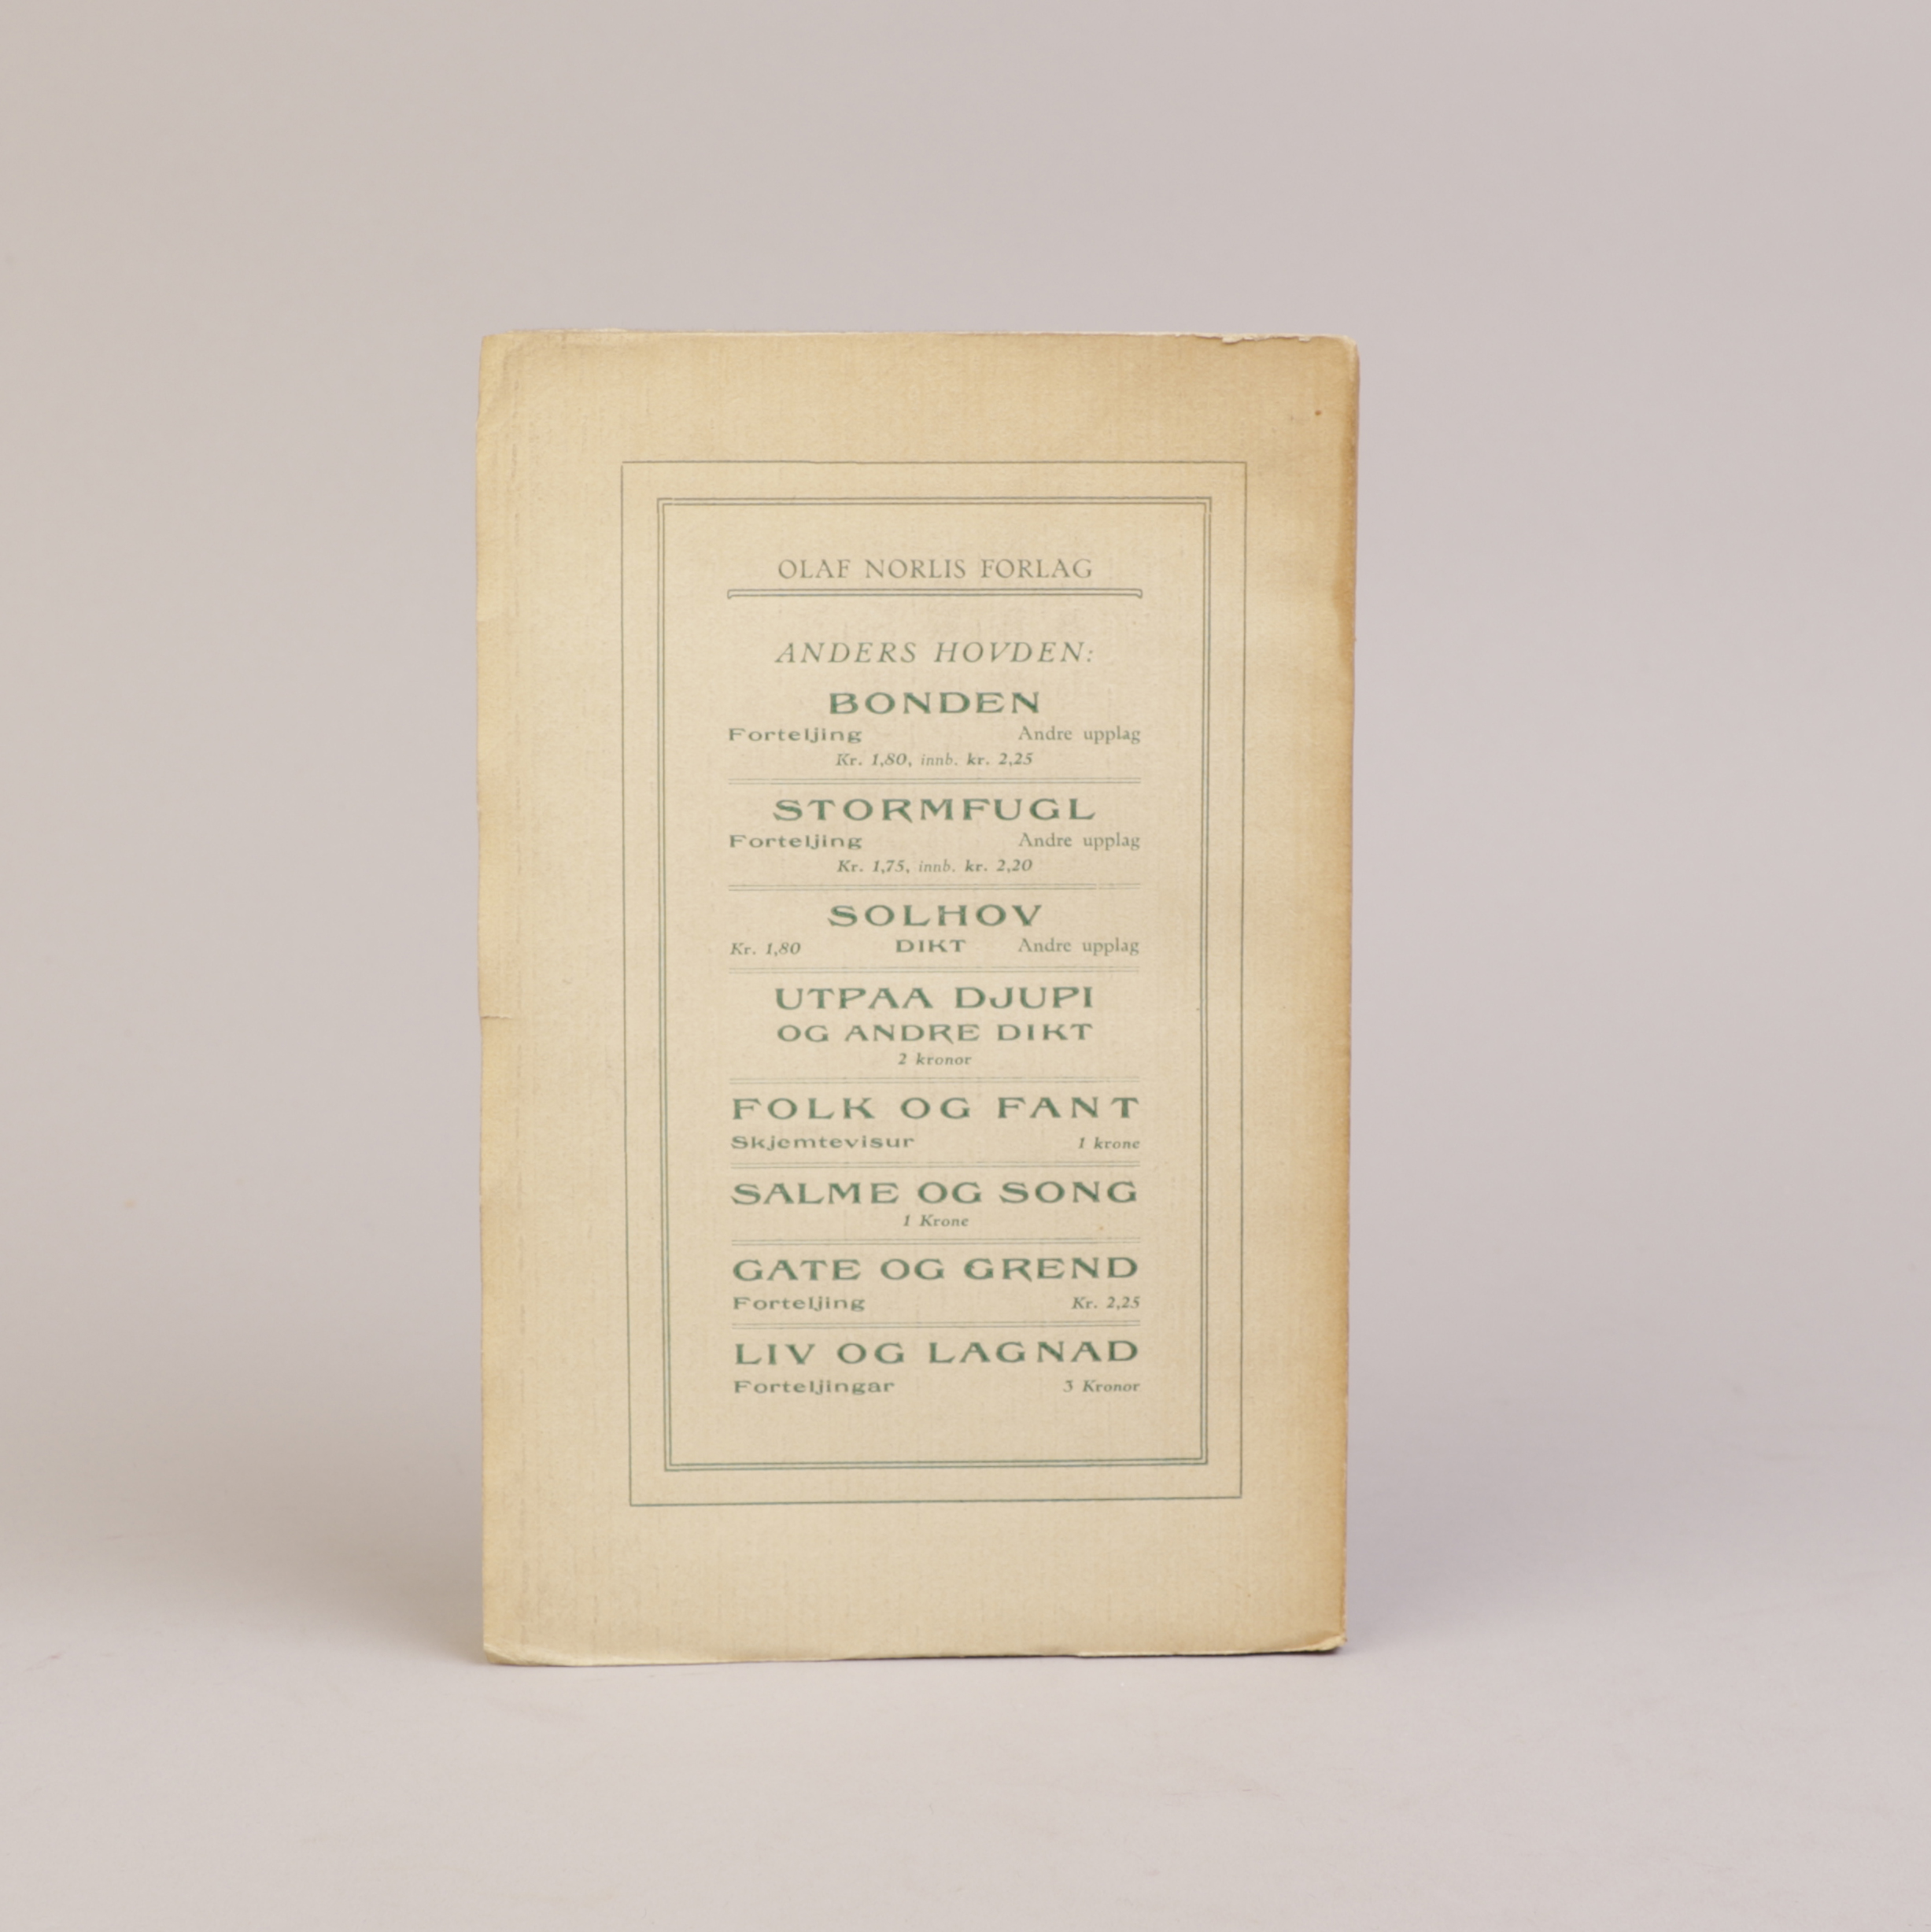 OLAF NORLIS FORLAG
ANDERS HOVDEN:
BONDEN
Forteljing Andre upplag
Kr. 1,80, innb. kr. 2,25
STORMFUGL
Forteljing Andre upplag
Kr. 1,75, innb. kr. 2,20
SOLHOV
Kr. 1,80 DIKT Andre upplag
UTPAA DJUPI
OG ANDRE DIKT
2 kronor
FOLK OG FANT
Skjemtevisur 1 krone
SALME OG SONG
1 Krone
GATE OG GREND
Forteljing Kr. 2,25
LIV OG LAGNAD
Forteljingar 3 Kronor